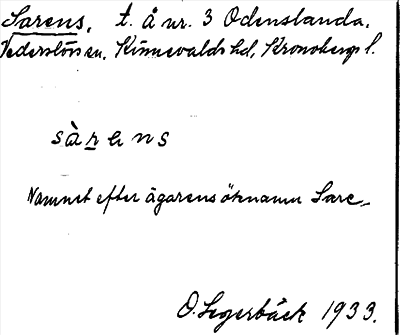 Sarens, t. å nr. 3 Odenslanda,
Vederslövs sn, Kinnevalds hd, Kronobergs l.
sàrens
Namnet efter ägarens öknamn Sare.
O. Segerbäck 1933.